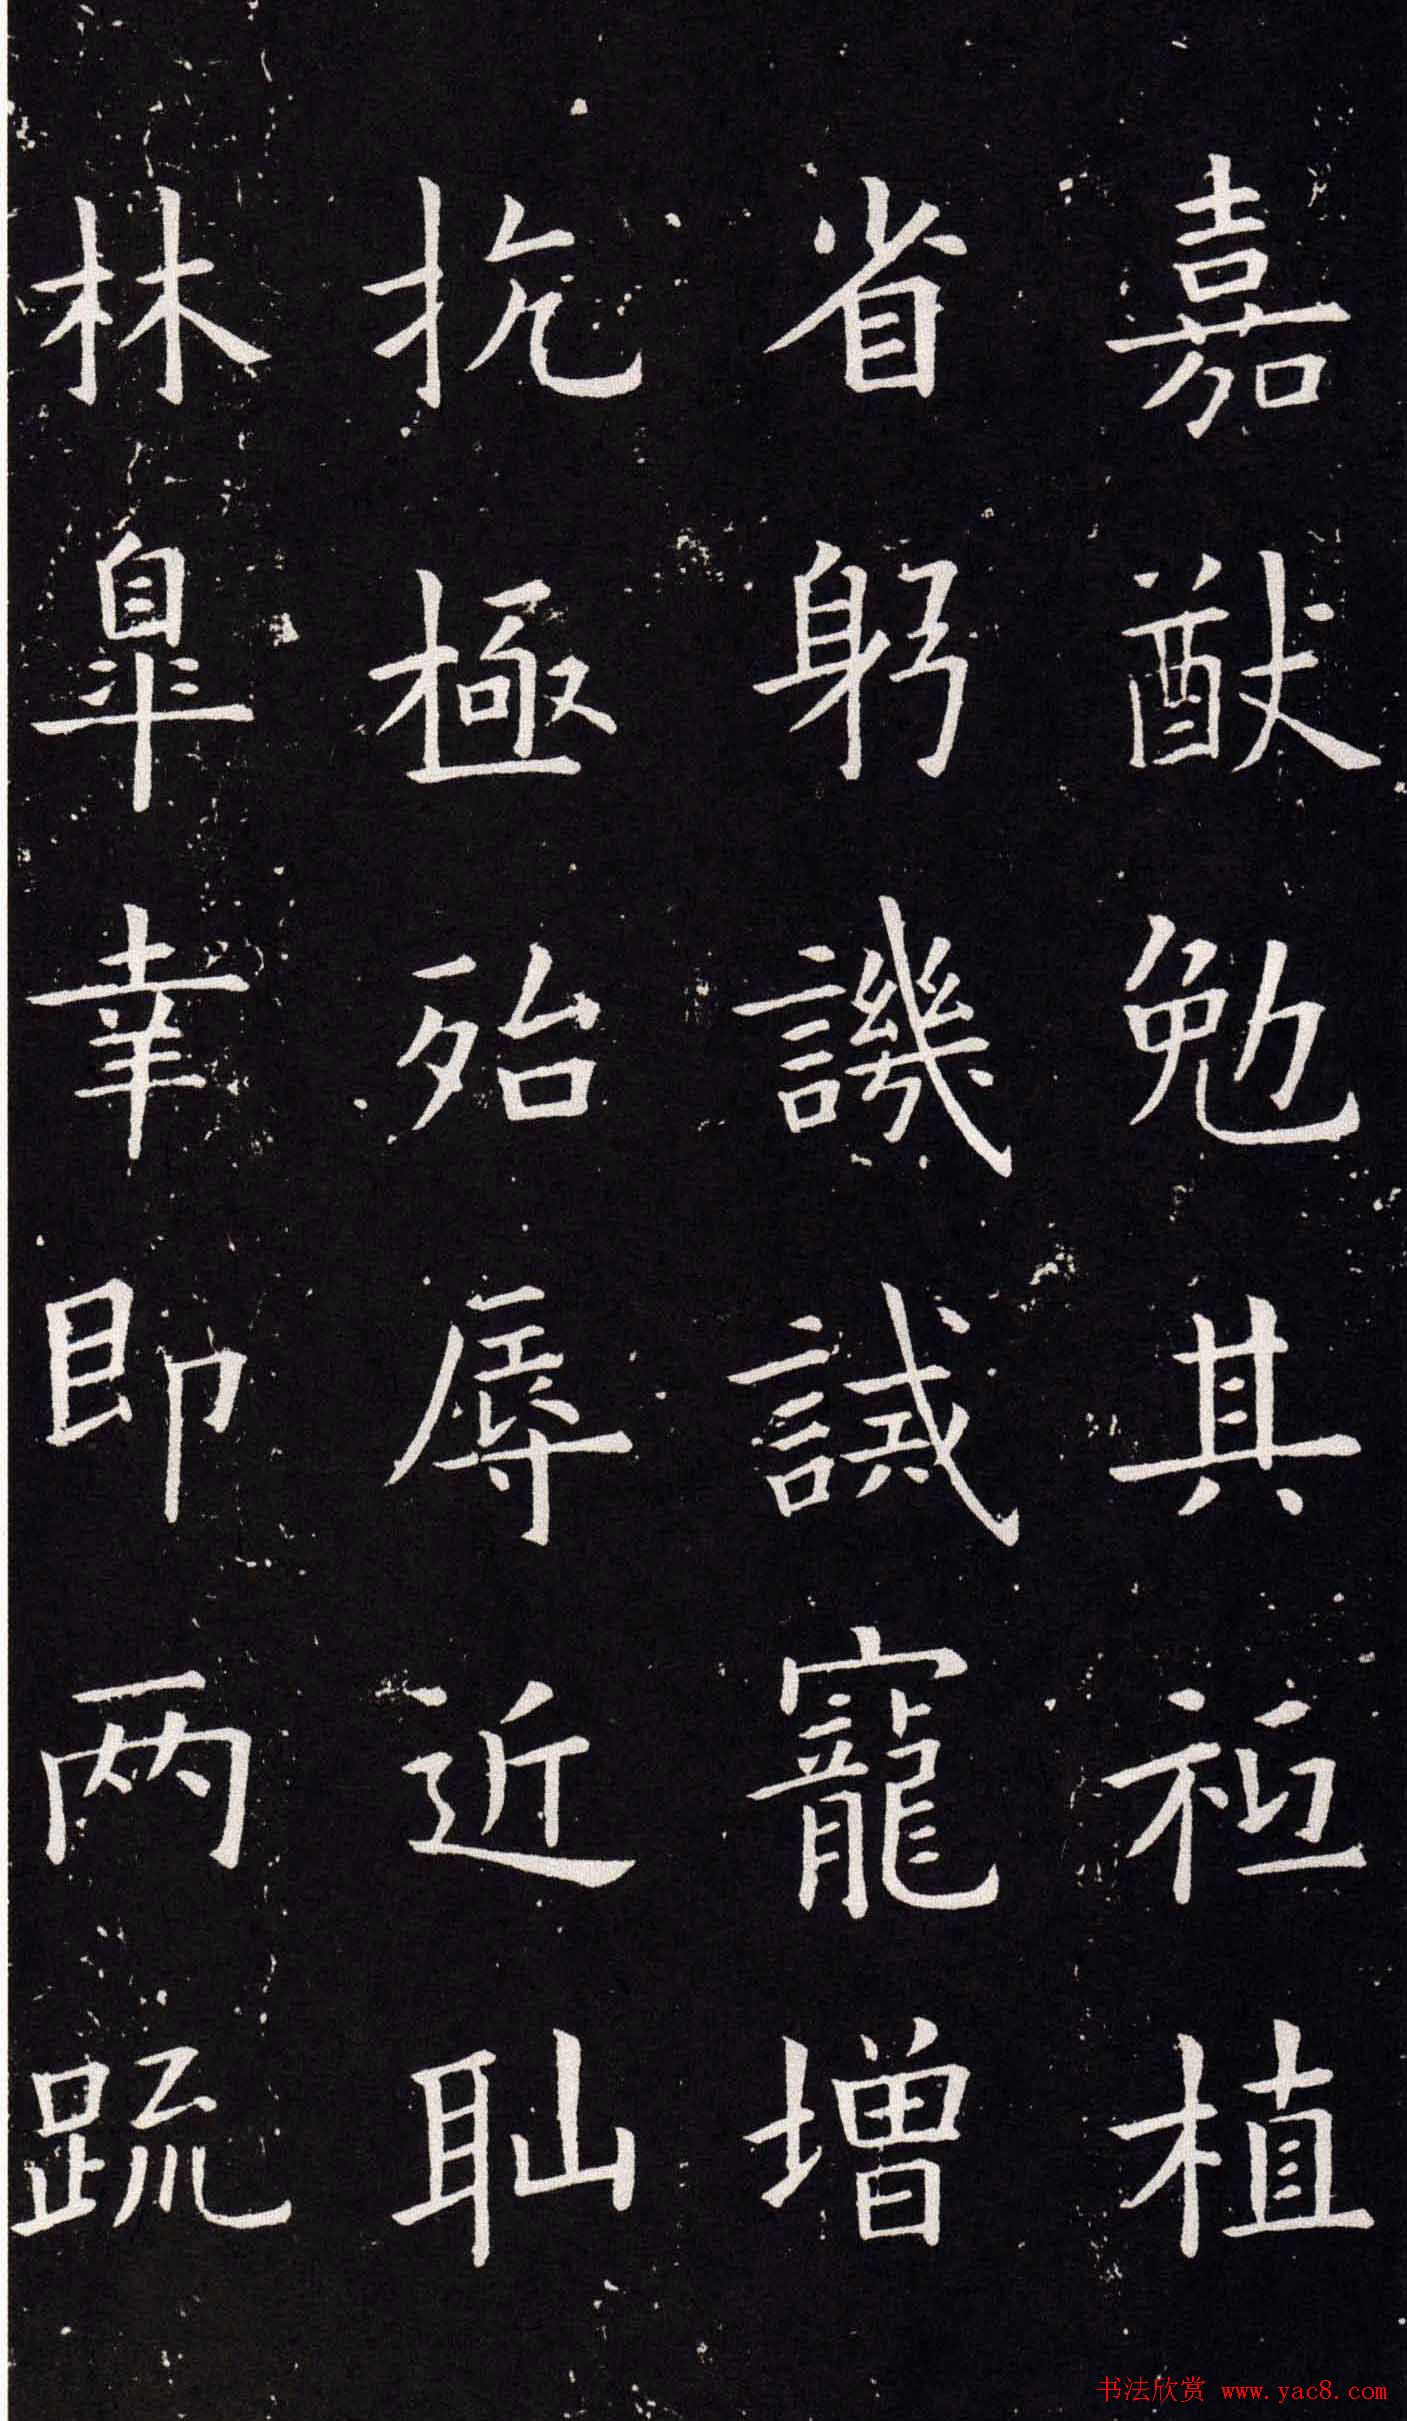 嘉猷勉其祗植
省躬譏誡寵增
抗極殆辱近恥
林皐幸即兩疏
书法欣赏 www.yac8.com